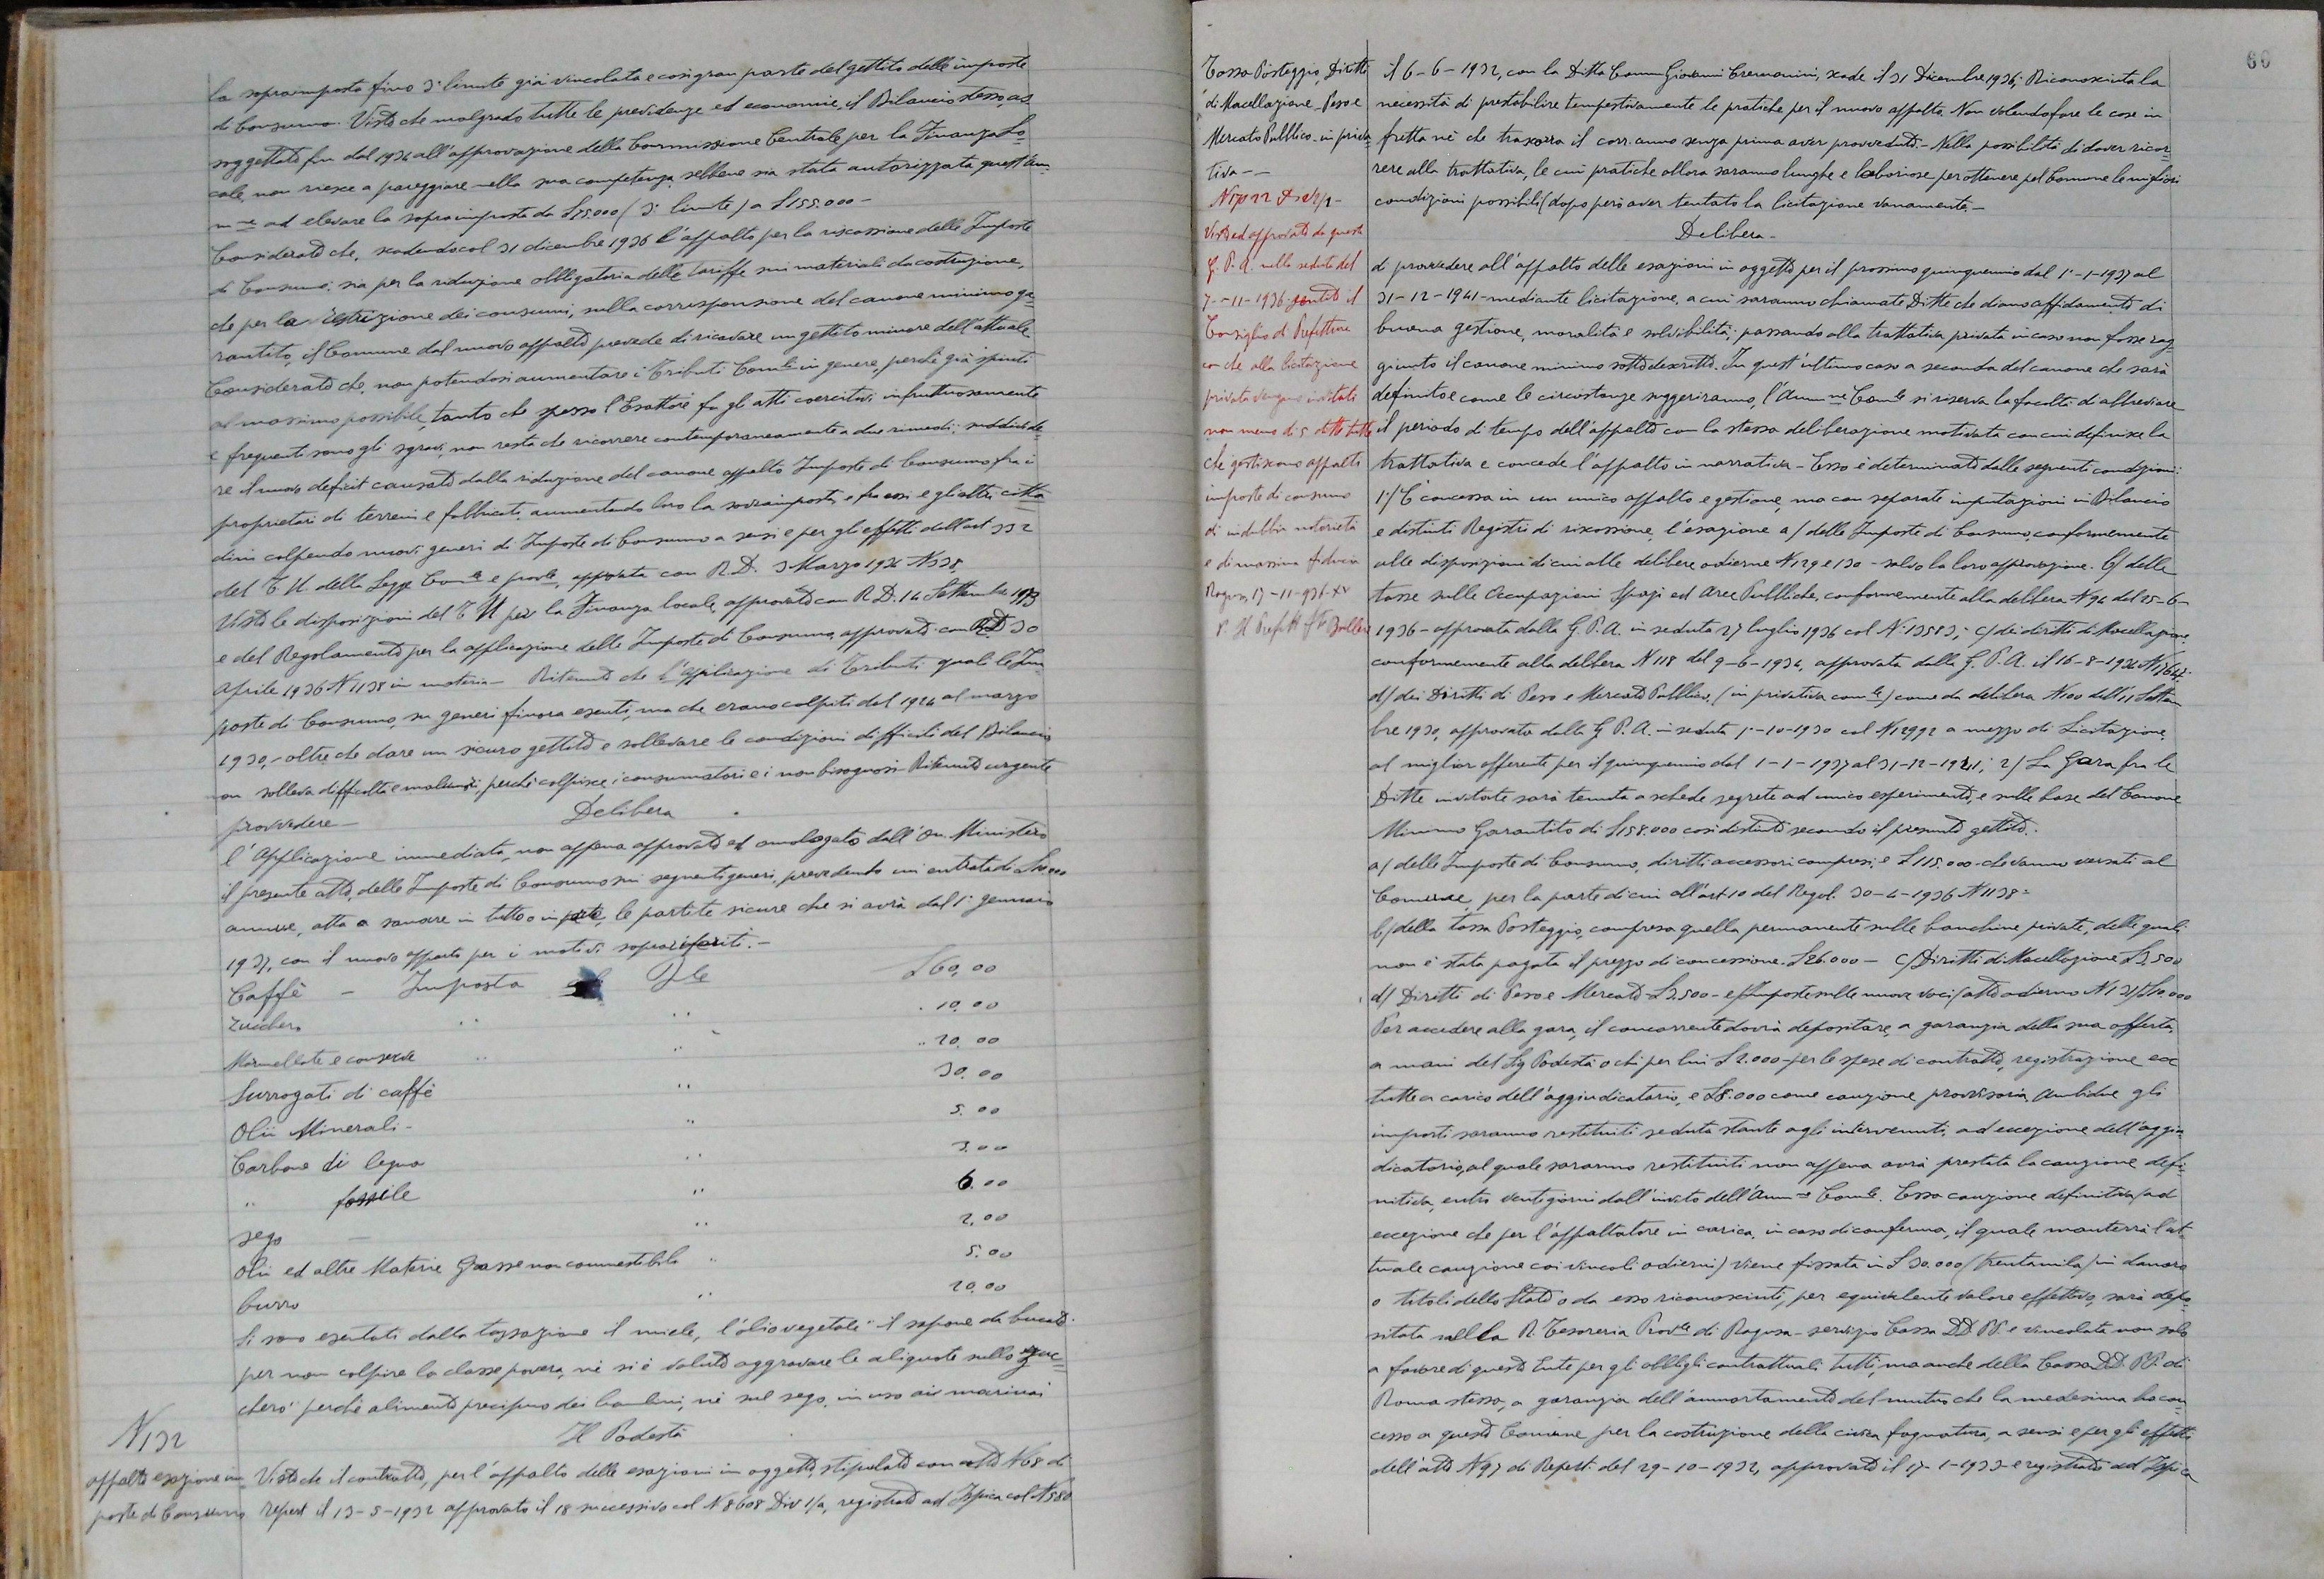 la sopraimposta fino 3° limite già vincolata e così gran parte del gettito delle imposte
di Consumo. Visto che malgrado tutte le previdenze ed economie, il Bilancio stesso, as
soggettato fin dal 1934 all'approvazione della Commissione Centrale per la Finanza Lo
cale, non riesce a pareggiare nella sua competenza sebbene sia stata autorizzata quest'Am
m.ne ad elevare la sopraimposta da £75000 (3° limite) a £155.000 -
Considerato che, scadendo col 31 dicembre 1936 l'appalto per la riscossione delle Imposte
di Consumo: sia per la riduzione obbligatoria delle tariffe sui materiali da costruzione,
che per la restrizione dei consumi, sulla corresponsione del canone minimo ga
rantito, il Comune dal nuovo appalto prevede di ricavare un gettito minore dell'attuale
Considerato che, non potendosi aumentare i Tributi Com.li in genere, perchè già spinti
al massimo possibile, tanto che spesso l'Esattore fa gli atti coercitivi infruttuosamente
e frequenti sono gli sgravi, non resta che ricorrere contemporaneamente a due rimedi: suddivide
re il nuovo deficit causato dalla riduzione del canone appalto Imposte di Consumo fra i
proprietari di terreni e fabbricati aumentando loro la sovraimposta, e fra essi e gli altri citta
dini colpendo nuovi generi di Imposte di Consumo a sensi e per gli effetti dell'art 332
del T. U. della Legge Com.le e prov.le, approvata con R.D. 3 Marzo 1934 N 338.
Viste le disposizioni del T U per la Finanza locale, approvato con R D. 14 Settembre 1931
e del Regolamento per la applicazione delle Imposte di Consumo, approvato con R.D. 30
Aprile 1936 N 1138 in materia - Ritenuto che l'applicazione di Tributi quali le Im
poste di Consumo, su generi finora esenti, ma che erano colpiti dal 1924 al marzo
1930, - oltre che dare un sicuro gettito e sollevare le condizioni difficili del Bilancio
non solleva difficoltà e malumori, perchè colpisce i consumatori e i non bisognosi - Ritenuto urgente
provvedere - Delibera
l'Applicazione immediata, non appena approvato ed omologato dall'On. Ministero
il presente atto, delle Imposte di Consumo sui seguenti generi, prevedendo un'entrata di £10.000
annue, atta a sanare in tutto o in parte, le partite sicure che si avrà dal 1° gennaio
1937, con il nuovo appalto per i motivi sopra riferiti. -
Caffè - Imposta Q.le £60,00
Zucchero " " . 10.00
Marmellate e conserve " " .. 20.00
Surrogati di caffè " 30.00
Olii Minerali - " 5.00
Carbone di legna " 3.00
" fossile " 6.00
Sego - " 2,00
Olii ed altre Materie Grasse non commestibili " 5.00
burro " 20,00
Si sono esentati dalla tassazione il miele, l'olio vegetale il sapone da bucato.
per non colpire la classe povera, nè si è voluto aggravare le aliquote sullo zuc
chero perchè alimento precipuo dei bambini, nè sul sego, in uso ai marinai
N 132
Il Podestà
appalto esazione im
poste di Consumo
Visto che il contratto, per l'appalto delle esazioni in oggetto, stipulato con atto N 68 di
repert il 13-5-1932 approvato il 18 successivo col N 8608 Div 1/a, registrato ad Ispica col N 580
60
Tassa Posteggio, Diritti
di Macellazione - Peso e
Mercato Pubblico - in priva
tiva - -
Visto ed approvato da questa
G. P. A. nella seduta del
7-11-1936 sentito il
Consiglio di Prefettura
con che alla licitazione
privata vengano invitati
non meno di 5 ditte tutte
che gestiscono appalti
imposte di consumo
di indubbia notorietà
e di massima fiducia
Ragusa, 17-11-936-XV
P. Il Prefetto
il 6-6-1932, con la Ditta Comm Giovanni Cremonini, scade il 31 Dicembre 1936; Riconosciuta la
necessità di prestabilire tempestivamente le pratiche per il nuovo appalto. Non volendo fare le cose in
fretta nè che trascorra il corr. anno senza prima aver provveduto. - Nella possibilità di dover ricor
rere alla trattativa, le cui pratiche allora saranno lunghe e laboriose per ottenere pel Comune le migliori
condizioni possibili (dopo però aver tentato la licitazione vanamente. -
Delibera -
di provvedere all'appalto delle esazioni in oggetto per il prossimo quinquennio dal 1°-1-1937 al
31-12-1941 - mediante licitazione, a cui saranno chiamate Ditte che diano affidamento di
buona gestione, moralità e solvibilità; passando alla trattativa privata in caso non fosse rag
giunto il canone minimo sotto descritto. In quest'ultimo caso a seconda del canone che sarà
definito e come le circostanze suggeriranno, l'Amm.ne Com.le si riserva la facoltà di abbreviare
il periodo di tempo dell'appalto con la stessa deliberazione motivata con cui definisce la
trattativa e concede l'appalto in narrativa - Esso è determinato dalle seguenti condizioni:
1°/ È concessa in un unico appalto e gestione, ma con separate imputazioni in Bilancio
e distinti Registri di riscossione, l'esazione a/ delle Imposte di Consumo conformemente
alle disposizioni di cui alle delibere odierne N 129 e 130 - salvo la loro approvazione. b/ delle
tasse sulle Occupazioni Spazi ed Aree Pubbliche, conformemente alla delibera N 94 del 25-6-
1936 - approvata dalla G. P. A. in seduta 27 luglio 1936 col N. 13583; c/ dei diritti di Macellazione,
conformemente alla delibera N 118 del 9-6-1934, approvata dalla G. P. A. il 16-8-1934 N 17644;
d/ dei Diritti di Peso e Mercato Pubblico, (in privativa com.le) come da delibera N 100 dell'11 Settem
bre 1930, approvata dalla G. P. A. in seduta 1°-10-1930 col N 12992 a mezzo di Licitazione
al miglior offerente per il quinquennio dal 1-1-1937 al 31-12-1941; 2/ La Gara fra le
Ditte invitate sarà tenuta a schede segrete ad unico esperimento, e sulla base del Canone
Minimo Garantito di £158.000 così distinto secondo il presunto gettito.
a/ delle Imposte di Consumo, diritti accessori compresi, £115.000 - che vanno versati al
Comune, per la parte di cui all'art 10 del Regol. 30-4-1936 N 1138 =
b/ della tassa Posteggio, compresa quella permanente sulle banchine private, delle quali
non è stata pagata il prezzo di concessione. £26.000 - c/ Diritti di Macellazione £3.500
d/ Diritti di Peso e Mercato £3.500 - e/ Imposte sulle nuove voci (atto odierno N 131) £10.000
Per accedere alla gara, il concorrente dovrà depositare, a garanzia della sua offerta,
a mani del Sig Podestà o chi per lui £2.000 - per le spese di contratto, registrazione ecc
tutte a carico dell'aggiudicatario, e £8.000 come cauzione provvisoria. Ambidue gli
importi saranno restituiti seduta stante agli intervenuti, ad eccezione dell'aggiu
dicatario, al quale saranno restituiti non appena avrà prestata la cauzione defi
nitiva, entro venti giorni dall'invito dell'Amm.ne Com.le. Essa cauzione definitiva (ad
eccezione che per l'appaltatore in carica, in caso di conferma, il quale manterrà l'at
tuale cauzione coi vincoli odierni) viene fissata in £30.000 (trentamila) in danaro
o titoli dello Stato o da esso riconosciuti, per equivalente valore effettivo, sarà depo
sitata nella R. Tesoreria Prov.le di Ragusa - servizio Cassa DD PP. e vincolata non solo
a favore di questo Ente per gli obblighi contrattuali tutti, ma anche della Cassa DD. PP. di
Roma stessa, a garanzia dell'ammortamento del mutuo che la medesima ha con
cesso a questo Comune per la costruzione della civica fognatura, a sensi e per gli effetti
dell'atto N 97 di Repert. del 29-10-1932, approvato il 17-1-1933 e registrato ad Ispica